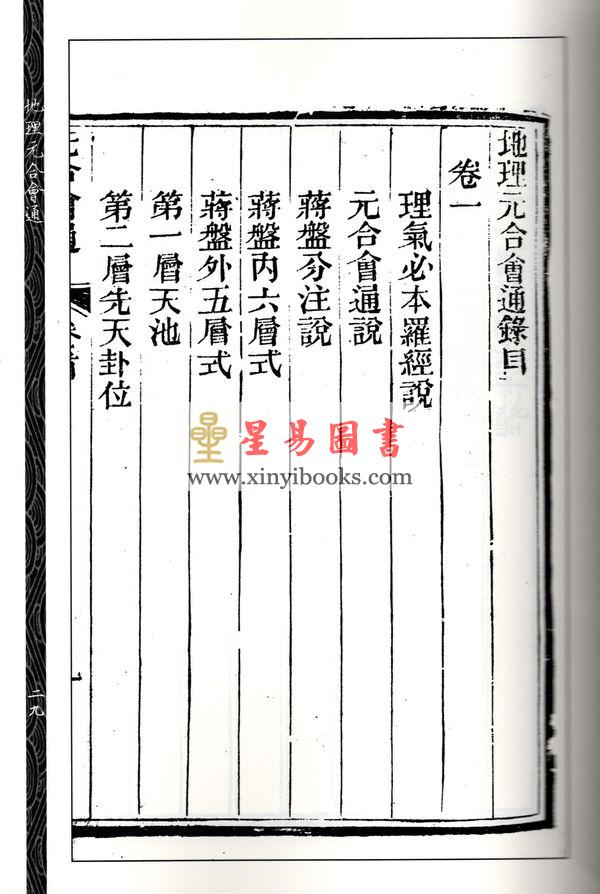 地理元合會通錄目
卷一
理氣必本羅經說
元合會通說
蔣盤分注說
蔣盤內六層式
蔣盤外五層式
第一層天池
第二層先天卦位
元合會通
卷首
一
地理元合會通
二九
星易圖書
www.xinyibooks.com